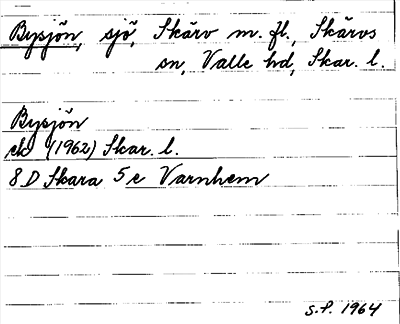 Bysjön, sjö, Skärv m. fl., Skärvs
sn, Valle hd, Skar. l.
Bysjön
ek (1962) Skar. l.
8 D Skara 5 e Varnhem
S.F. 1964